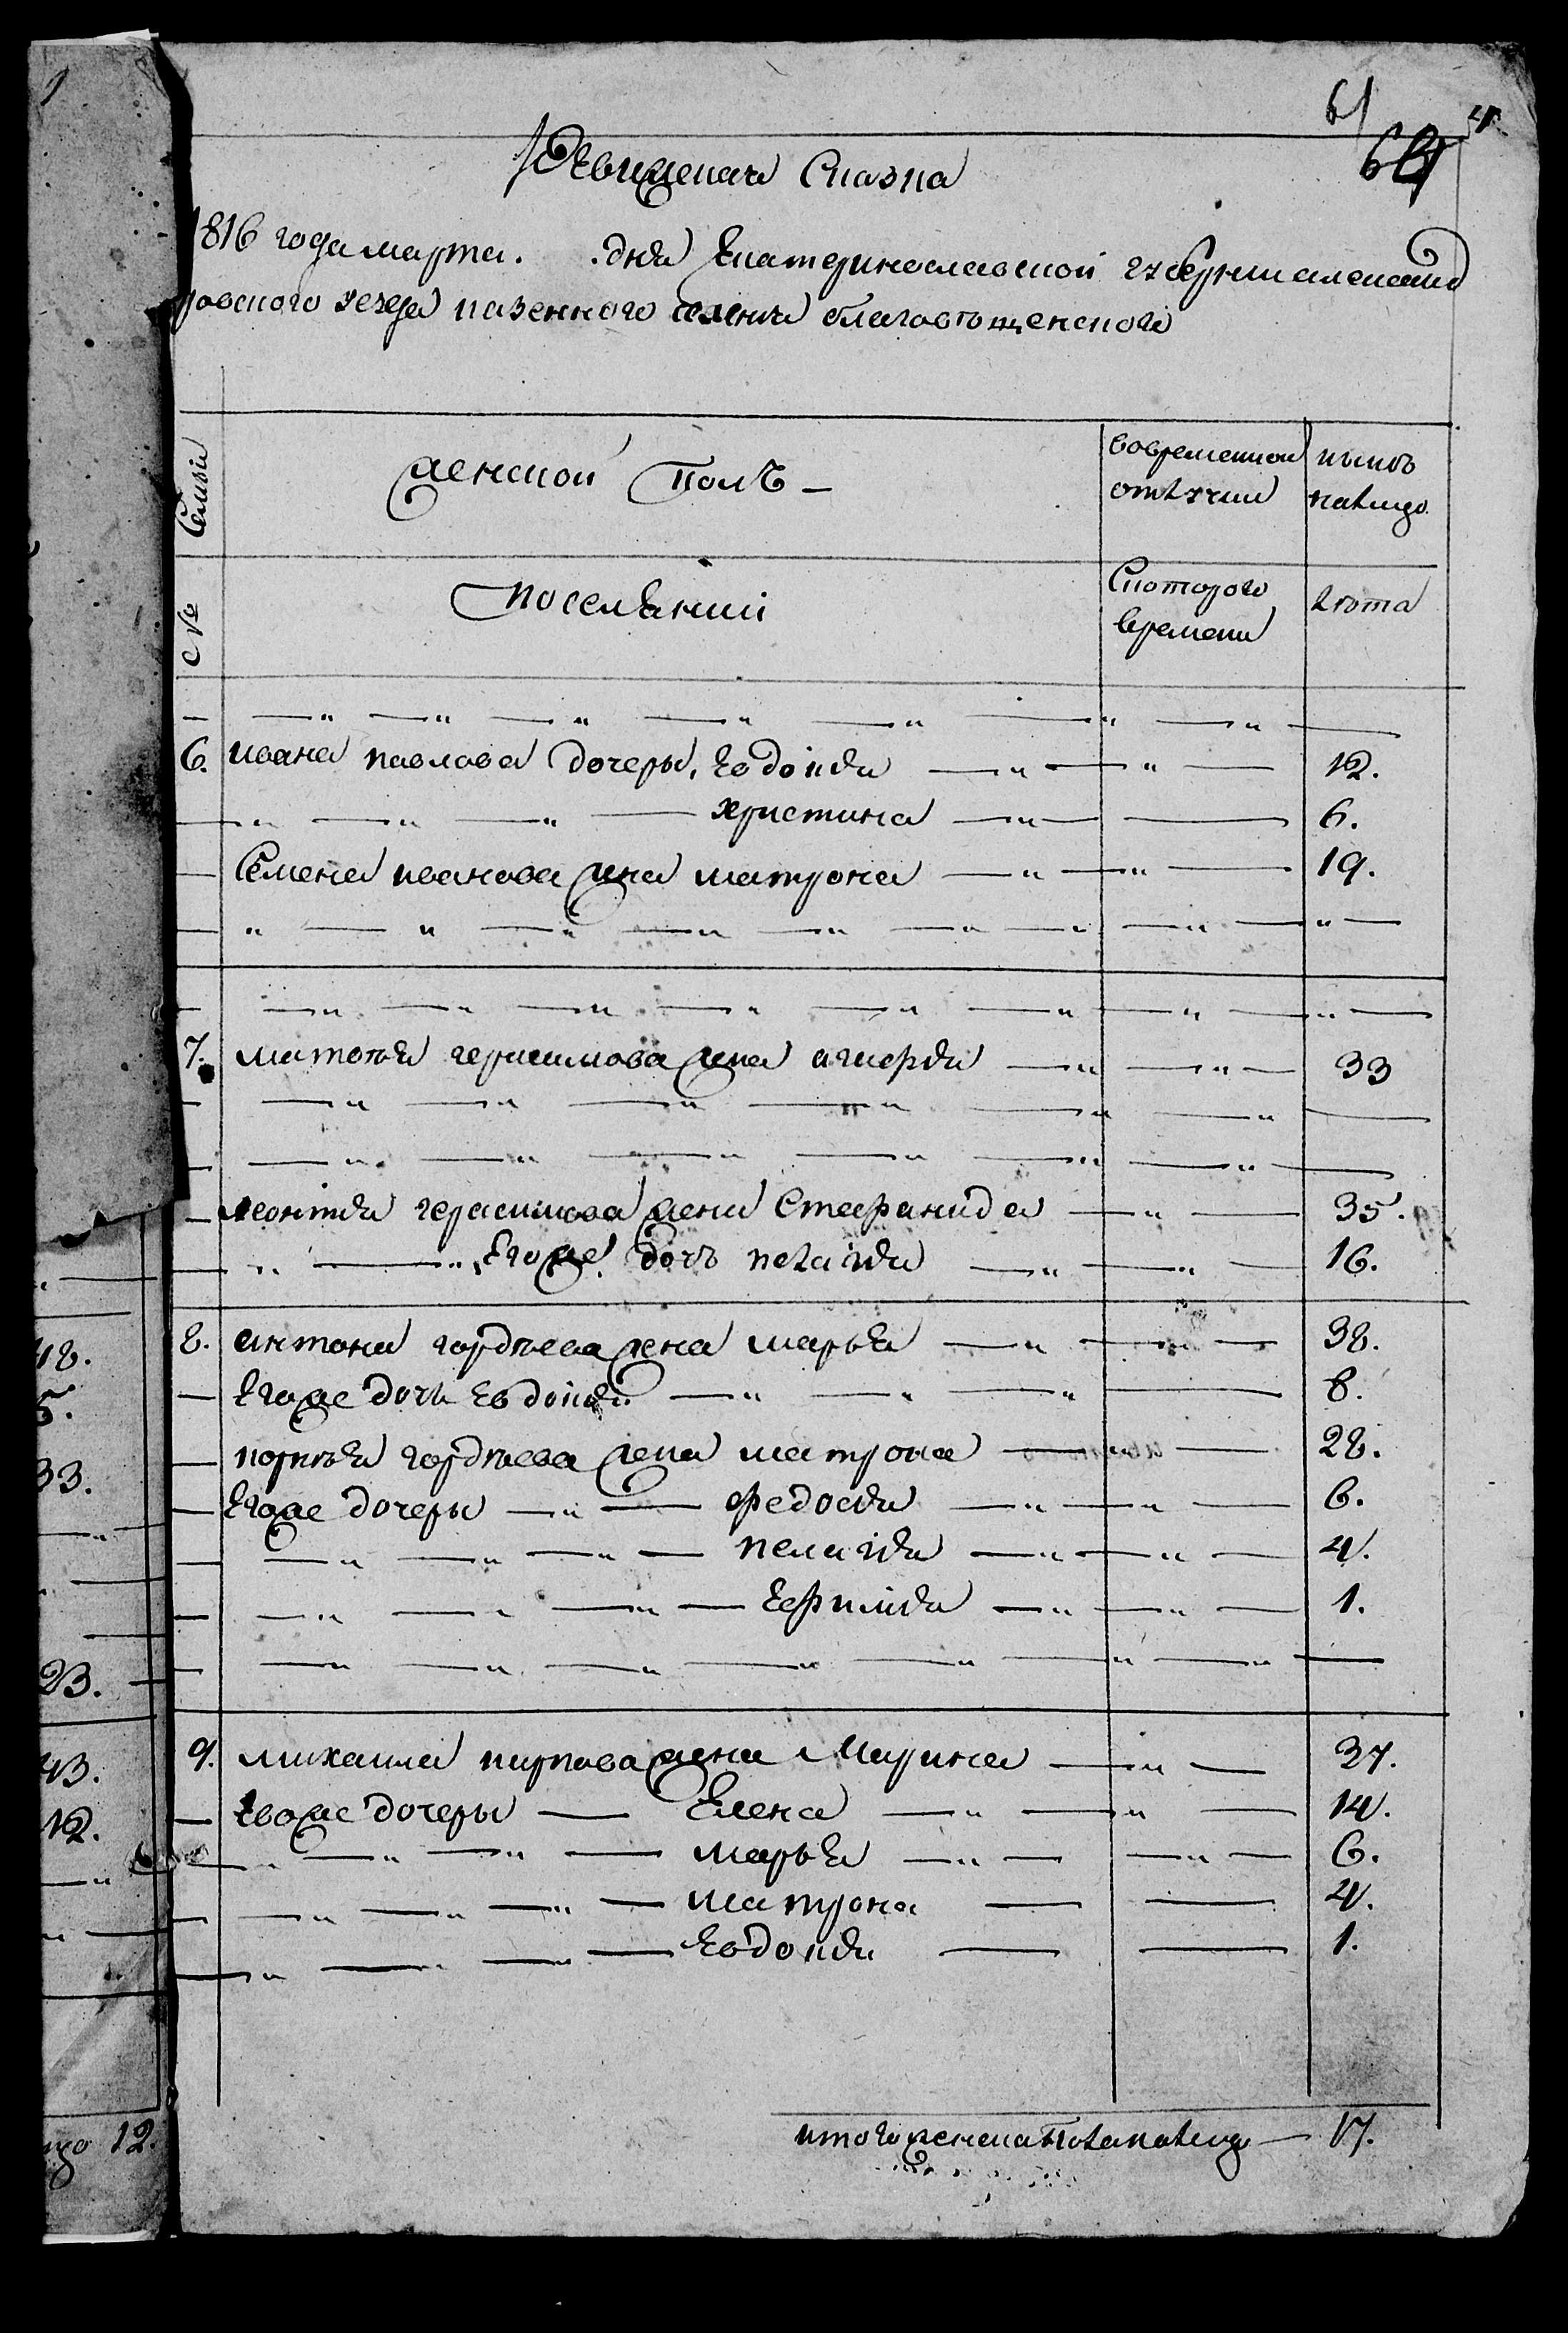 61
4
Ревизская Сказка
1816 года марта . . дня Екатеринославской губернии александ
ровского уезда казенного селения благовъщенского
Семьи
женской Полъ
вовременной
отлучки
нынъ
налицо.
№
поселяний
Скоторого
времени
лъта
6. ивана павлова дочеры, Евдокия 12.
христина 6.
Семена иванова жна матрона 19.
7. матвъя герасимова жена 33
леонтия герасимова жена Стефанида 35.
Егоже дочъ пелагия 16.
8. антона гордъева жена марья 38.
Егоже дочъ Евдокия 8.
корнъя гордъева жена матрона 28.
Егоже дочеры федосия 6.
пелагия 4.
Ефимия 1.
9. михаила карпова жена Марина 37.
Евоже дочеры Елена 14.
марья 6.
матрона 4.
Евдокия 1.
итого женска Пола налицо 17.
18.
5.
33.
23.
43.
12.
цо 12.